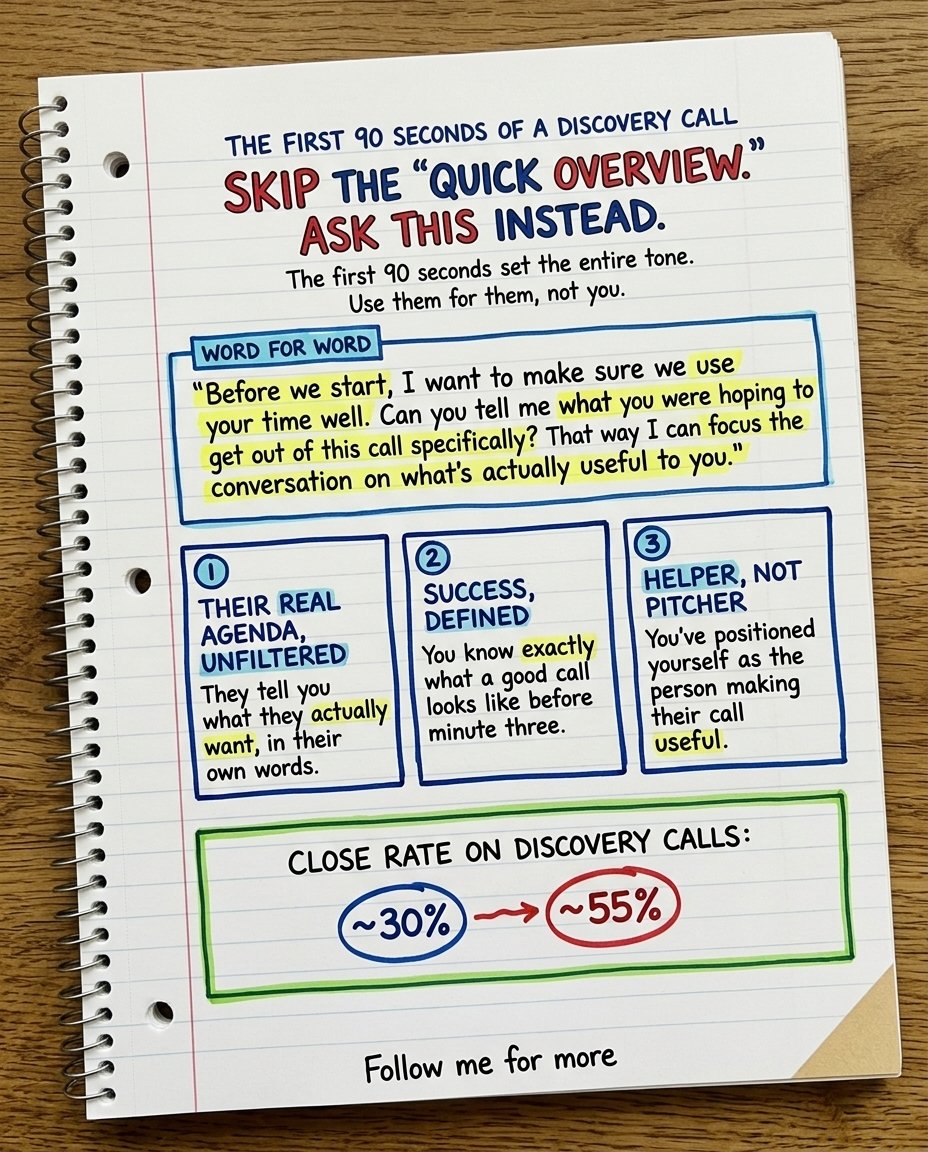 THE FIRST 90 SECONDS OF A DISCOVERY CALL
SKIP THE “QUICK OVERVIEW.”
ASK THIS INSTEAD.
The first 90 seconds set the entire tone.
Use them for them, not you.
WORD FOR WORD
“Before we start, I want to make sure we use
your time well. Can you tell me what you were hoping to
get out of this call specifically? That way I can focus the
conversation on what's actually useful to you.”
1
THEIR REAL
AGENDA,
UNFILTERED
They tell you
what they actually
want, in their
own words.
2
SUCCESS,
DEFINED
You know exactly
what a good call
looks like before
minute three.
3
HELPER, NOT
PITCHER
You've positioned
yourself as the
person making
their call
useful.
CLOSE RATE ON DISCOVERY CALLS:
~30% → ~55%
Follow me for more